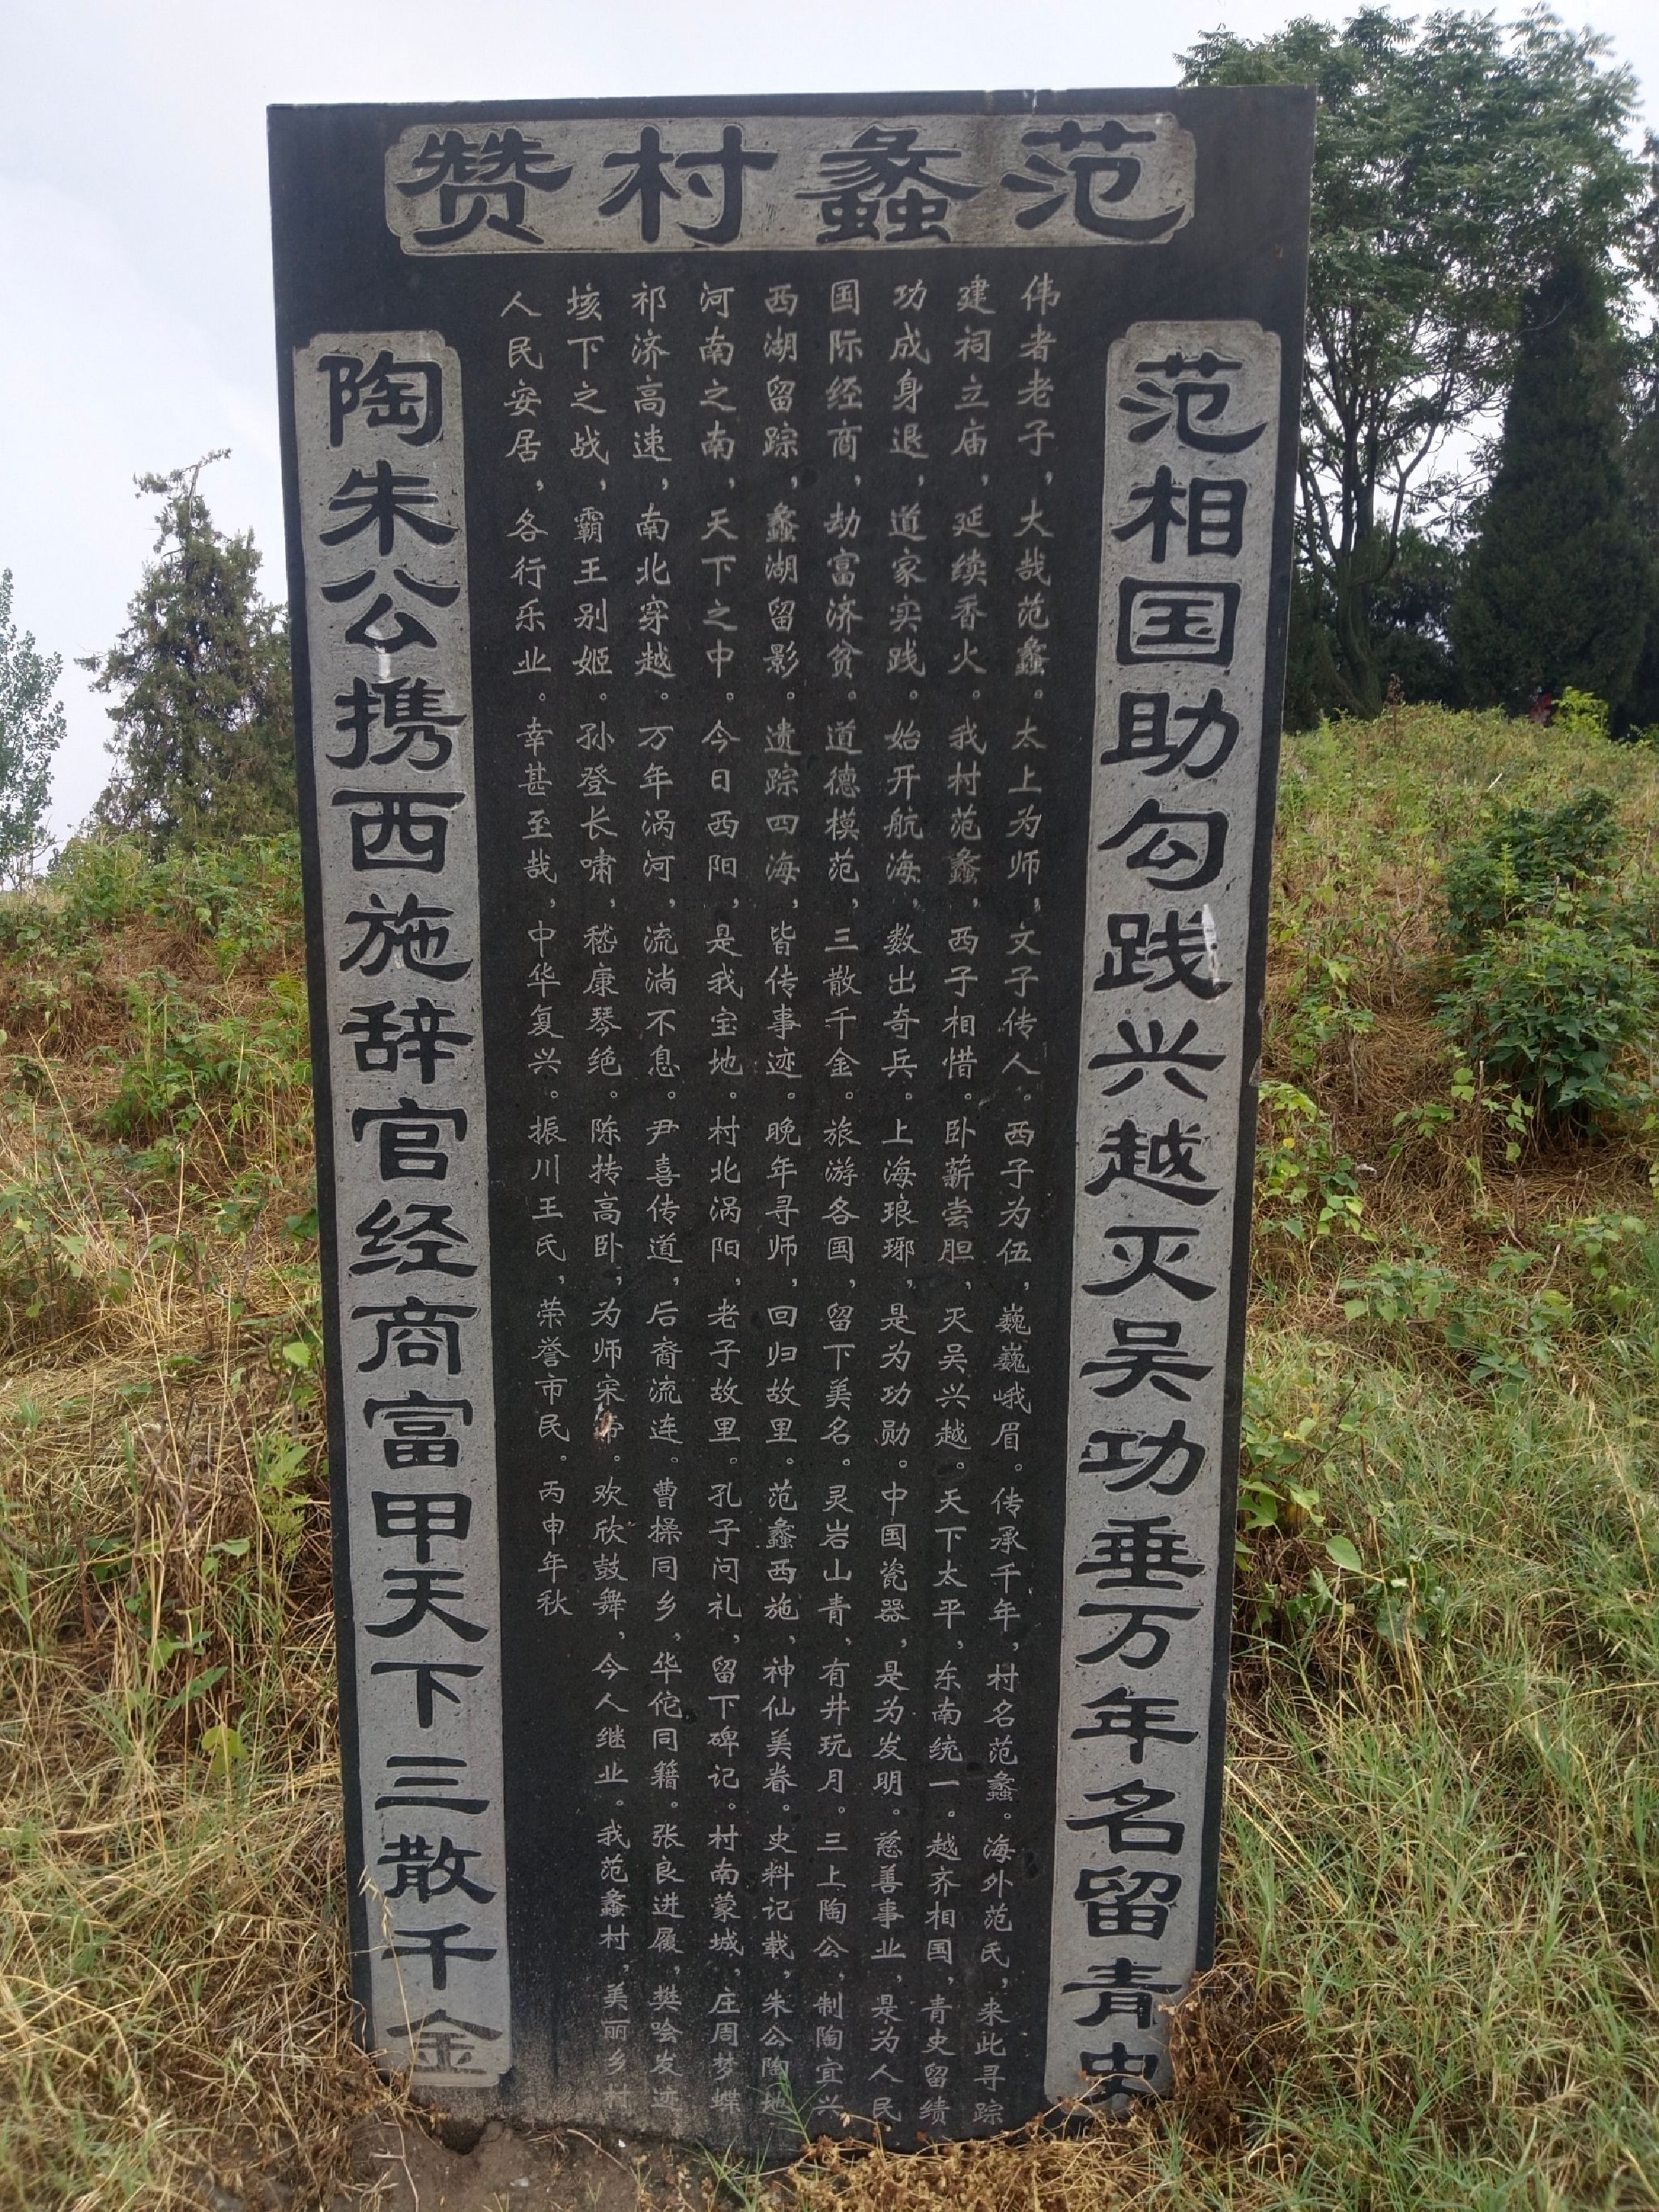 范蠡村赞
范相国助勾践兴越灭吴功垂万年名留青史
伟者老子，大哉范蠡。太上为师，文子传人。西子为伍，巍巍峨眉。传承千年，村名范蠡。海外范氏，来此寻踪
建祠立庙，延续香火。我村范蠡，西子相惜。卧薪尝胆，灭吴兴越。天下太平，东南统一。越齐相国，青史留绩
功成身退，道家实践。始开航海，数出奇兵。上海琅琊，是为功勋。中国瓷器，是为发明。慈善事业，是为人民
国际经商，劫富济贫。道德模范，三散千金。旅游各国，留下美名。灵岩山青，有井玩月。三上陶公，制陶宜兴
西湖留踪，蠡湖留影。遗踪四海，皆传事迹。晚年寻师，回归故里。范蠡西施，神仙美眷。史料记载，朱公陶地
河南之南，天下之中。今日西阳，是我宝地。村北涡阳，老子故里。孔子问礼，留下碑记。村南蒙城，庄周梦蝶
祁济高速，南北穿越。万年涡河，流淌不息。尹喜传道，后裔流连。曹操同乡，华佗同籍。张良进履，樊哙发迹
垓下之战，霸王别姬。孙登长啸，嵇康琴绝。陈抟高卧，为师宋帝。欢欣鼓舞，今人继业。我范蠡村，美丽乡村
人民安居，各行乐业。幸甚至哉，中华复兴。振川王氏，荣誉市民。丙申年秋
陶朱公携西施辞官经商富甲天下三散千金